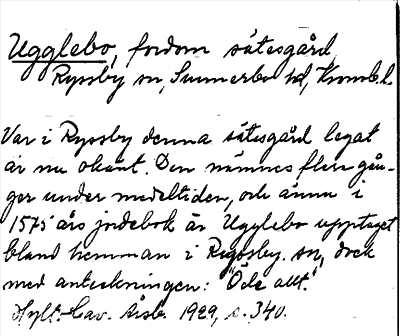 Ugglebo, fordom sätesgård
Ryssby sn, Sunnerbo hd, Kronob. l.
Var i Ryssby denna sätesgård legat
är nu okänt. Den nämnes flera gån-
ger under medeltiden, och ännu i
1575 års jordebok är Ugglebo upptaget
bland hemman i Rysssby sn, dock
med anteckningen: "Öde allt."
Hylt.-Cav. Årsb. 1929, s. 340.